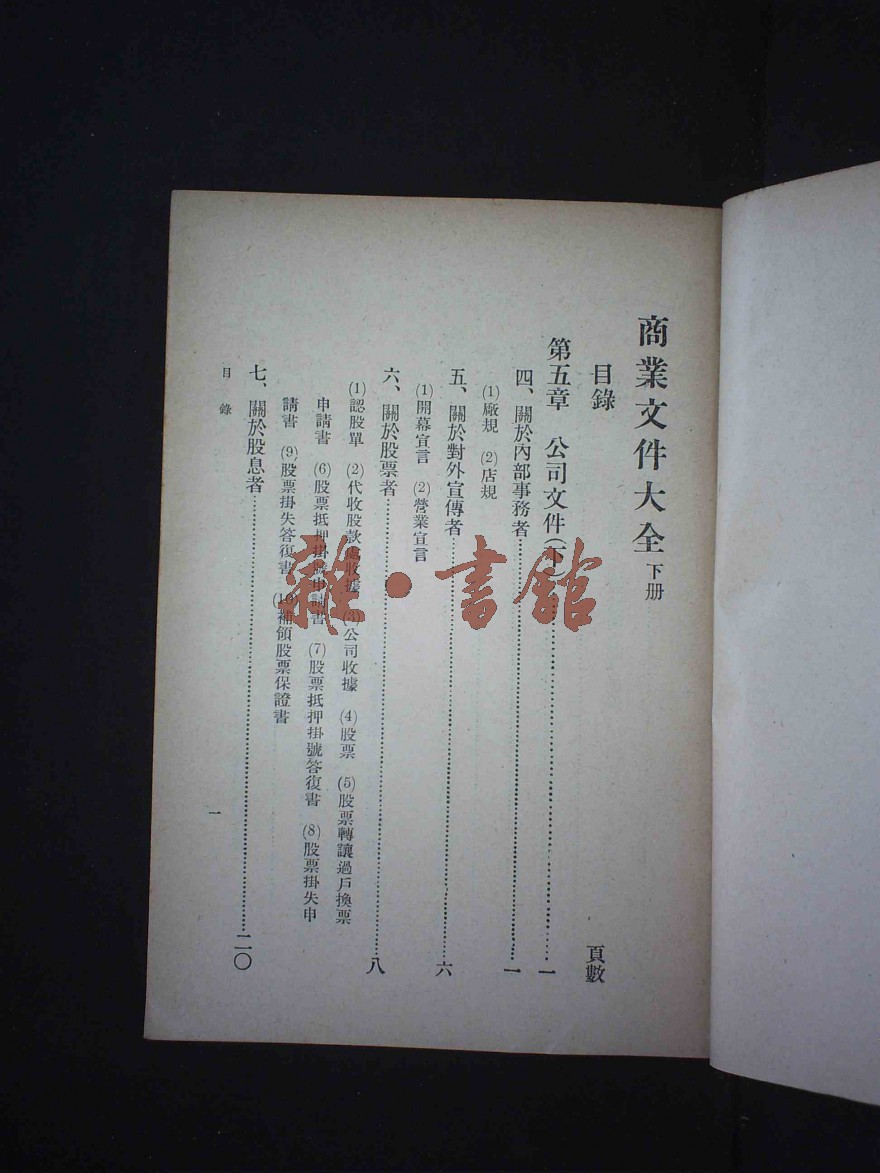 商業文件大全 下册
目錄 頁數
第五章 公司文件(下)……一
四、關於內部事務者……一
(1)廠規 (2)店規
五、關於對外宣傳者……六
(1)開幕宣言 (2)營業宣言
六、關於股票者……八
(1)認股單 (2)代收股款處收據 (3)公司收據 (4)股票 (5)股票轉讓過戶換票
申請書 (6)股票抵押掛號申請書 (7)股票抵押掛號答復書 (8)股票掛失申
請書 (9)股票掛失答復書 (10)補領股票保證書
七、關於股息者……二〇
目錄 一
雜·書館